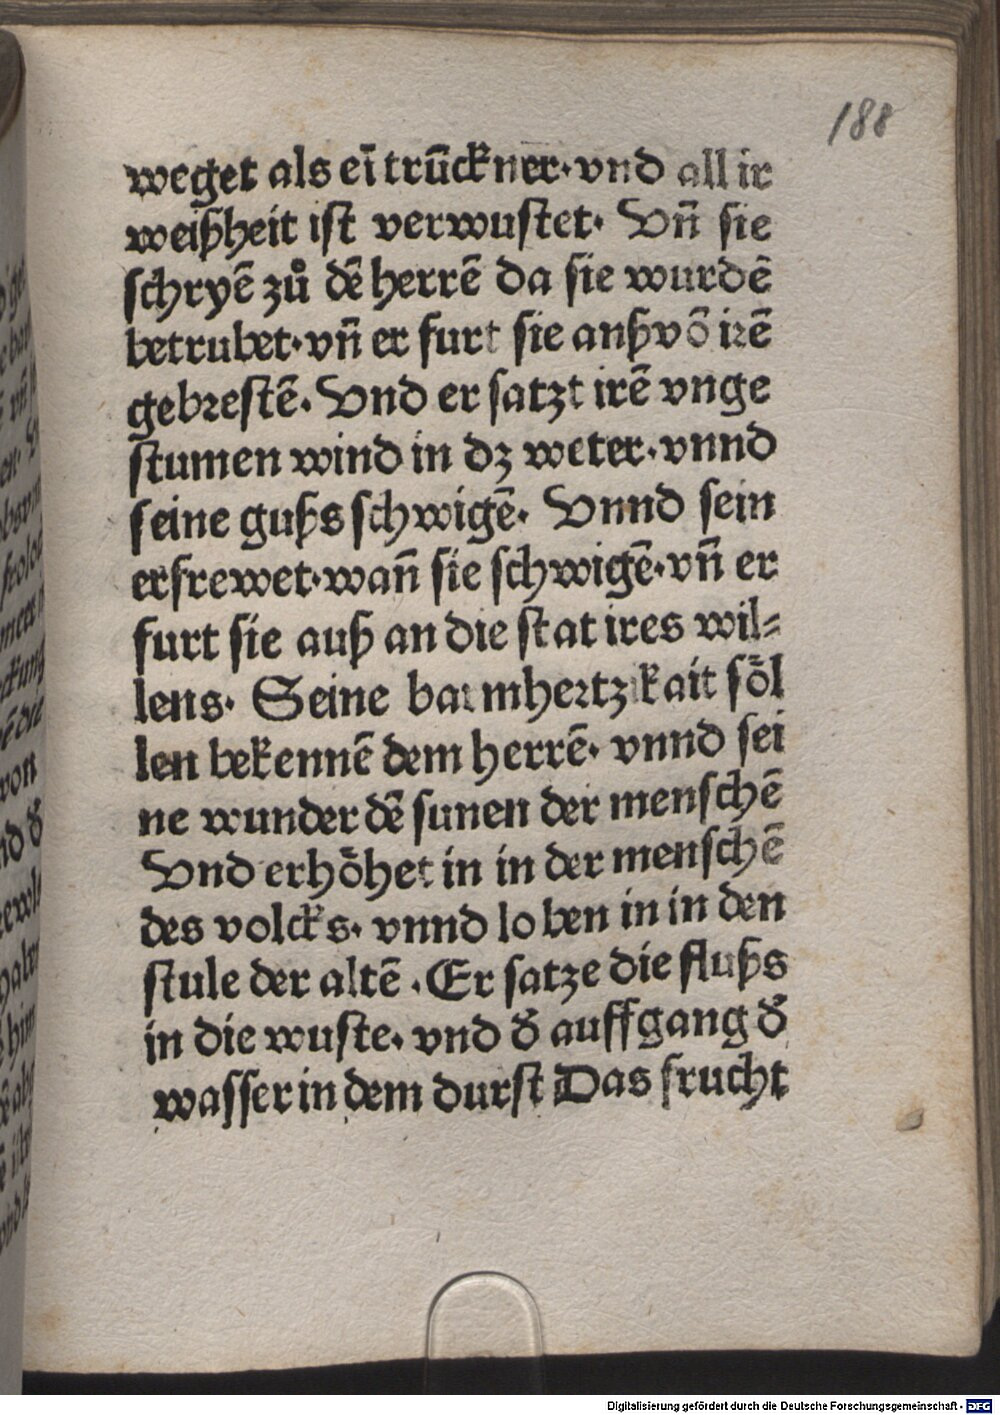 188
weget als eī trūckner·vnd all ir
weißheit ist verwustet· Vn̄ sie
schryē zů dē herrē da sie wurdē
betrubet·vn̄ er furt sie anß vō irē
gebrestē. Vnd er satzt irē vnge
stumen wind in dz weter·vnnd
seine gußs schwigē· Vnnd sein
erfrewet·wan̄ sie schwigē·vn̄ er
furt sie auß an die stat ires wil⸗
lens· Seine barmhertzikait sȫl
len bekennē dem herrē· vnnd sei
ne wunder dē sunen der menschē
Vnd erhȫhet in in der menschē
des volcks· vnnd loben in in den
stule der altē .Er satze die flußs
in die wuste· vnd d̛ auffgang d̛
wasser in dem durst Das frucht
Digitalisierung gefördert durch die Deutsche Forschungsgemeinschaft - DFG